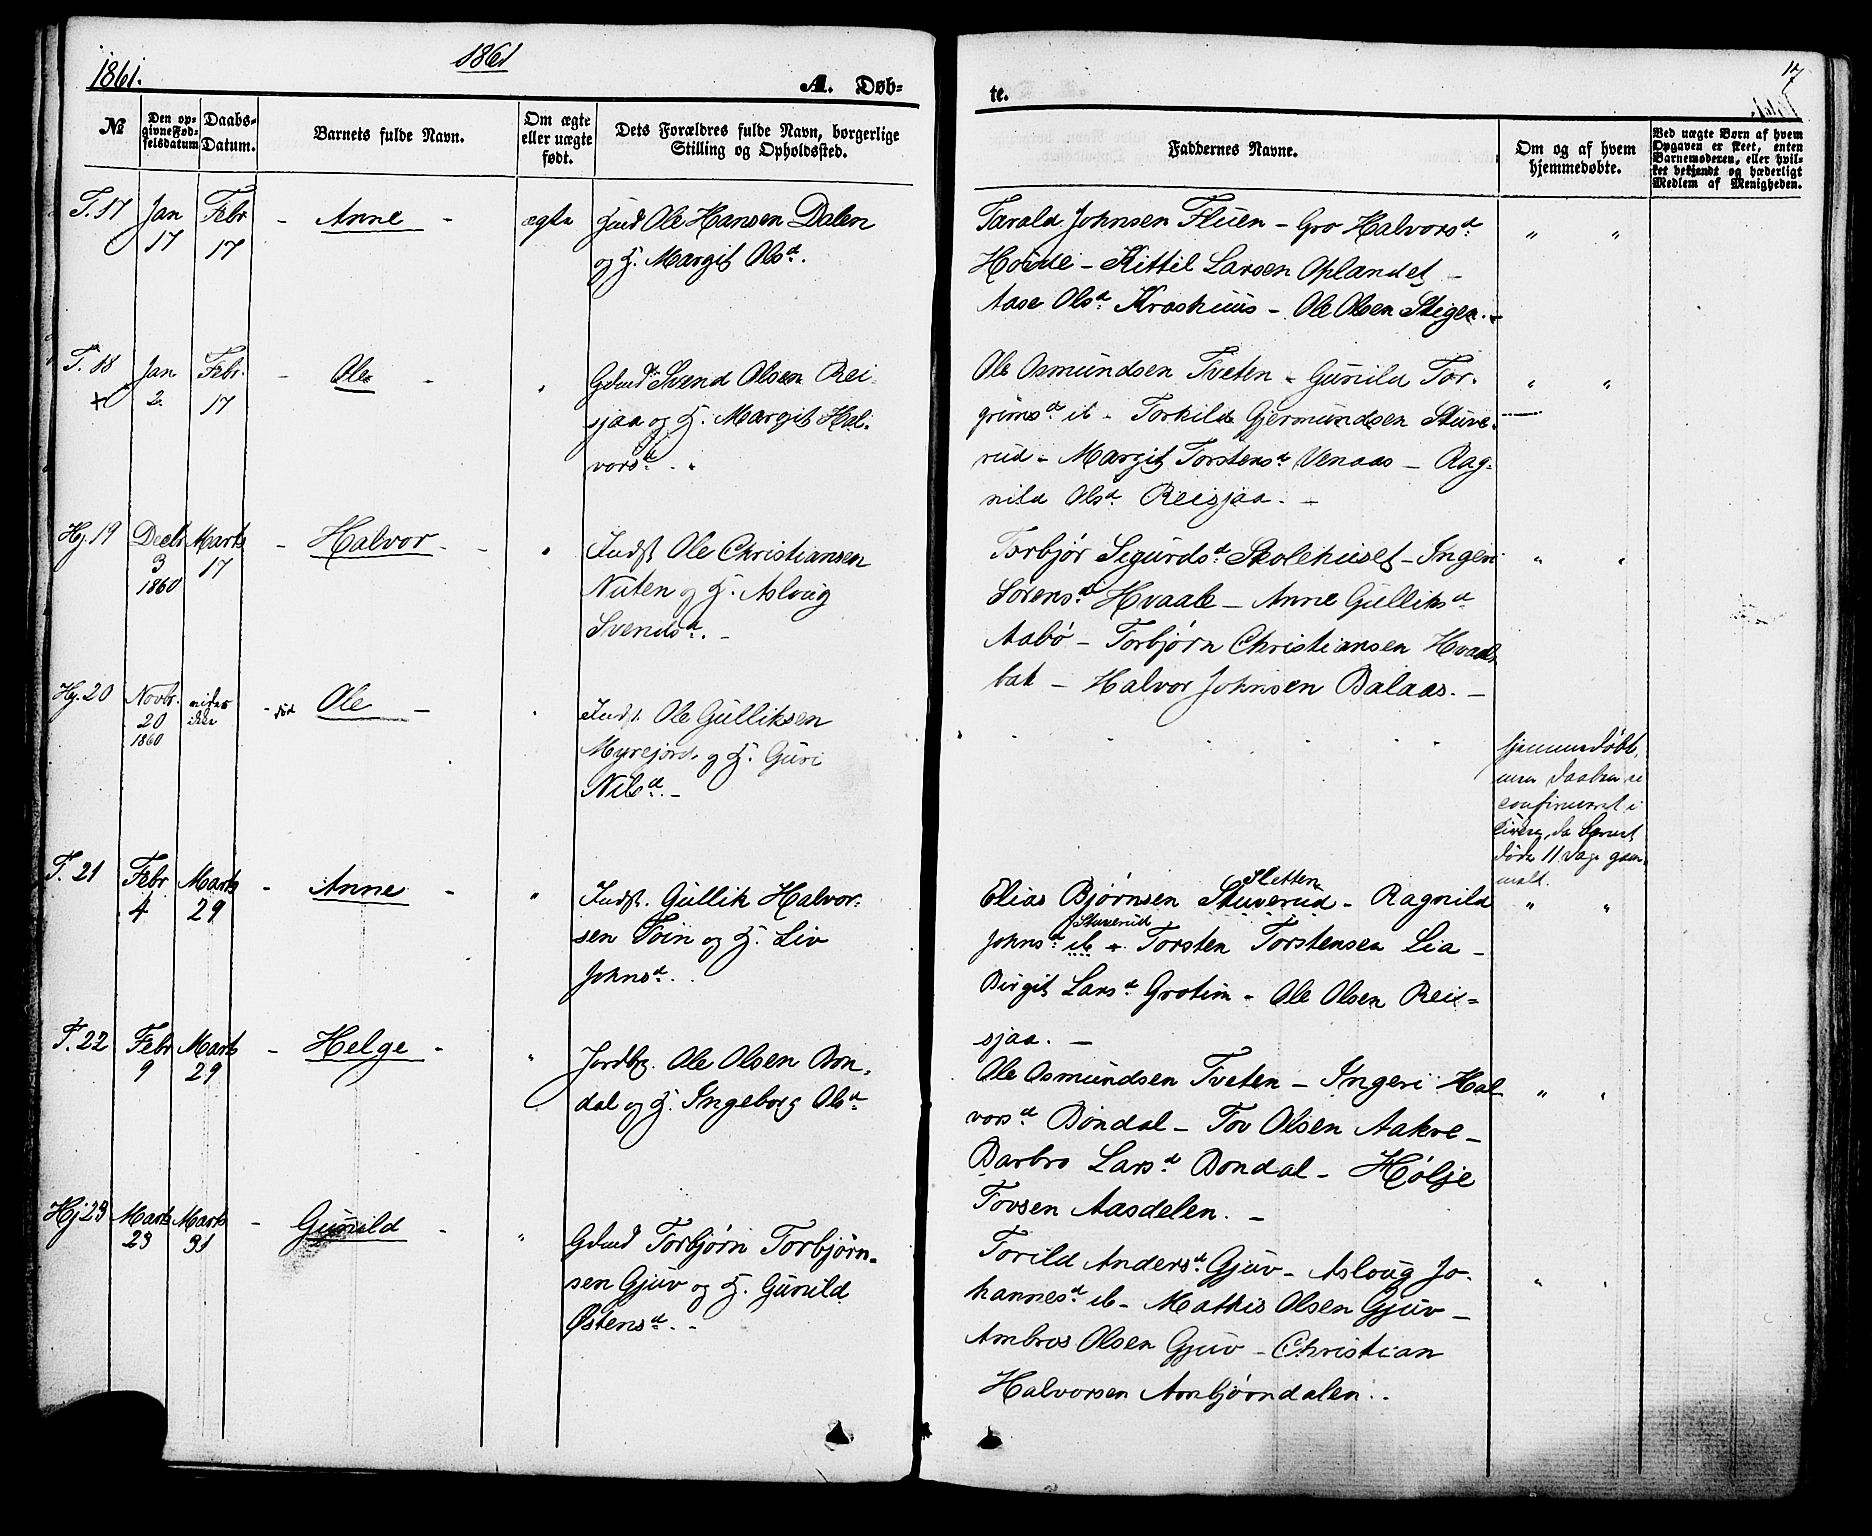 1861. 1861 A. Døb-
te. 17
№ Den opgivne Fødselsdatum Daabs-Datum. Barnets fulde Navn. Om ægte eller uægte født. Dets Forældres fulde Navn, borgerlige Stilling og Opholdssted.
Faddernes Navne. Om og af hvem hjemmedøbte. Ved uægte Børn af hvem Opgaven er skeet, enten Barnemoderen, eller hvilket bekjendt og hæderligt Medlem af Menigheden.
T. 17 Jan 17 Febr 17 - Anne - ægte
Ole Hansen Dalen
og H. Margit Olsd.
Tarald Johnsen Fluen - Gro Halvorsd. " "
Hovde - Kittil Larsen Oplandet -
Aase Olsd. Kraskuus - Ole Olsen Stigen. -
T. 18 Jan 2. Febr. 17 - Ole - "
Gdmd. Svend Olsen Rei-
sjaa og H. Margit Hal-
vorsd. -
Ole Osmundsen Tveten - Gunild Tor- " "
grimsd. ib - Torkild Gjermundsen Stuve-
rud - Margit Torstensd. Venaas - Rag-
nild Olsd. Reisjaa. -
Hj. 19 Decbr 3 1860 Marts 17 - Halvor - "
Indst Ole Christiansen
Nuten og H. Asloug
Svendsd. -
Torbjør Sigurdsd. Skolehuset - Ingeri " "
Sørensd. Hvaale - Anne Gulliksd.
Aabø - Torbjørn Christiansen Hvaale-
bak - Halvor Johnsen Balaas. -
Hj. 20 Novbr. 20 1860 - død Ole - "
Indst. Ole Gulliksen
Myrejord og H. Guri
Nilsd. -
hjemmedøbt,
men Daaben ei
confirmeret i
Kirken, da Barnet
døde 11 Dage gam-
malt.
T. 21 Febr 4 Marts 29 - Anne - "
Indst. Gullik Halvor-
sen Toin og H. Liv
Johnsd. -
Sletten
Elias Bjørnsen Stuverud - Ragnild " "
Stuverud
Johnsd. ib - Torsten Torstensen Lia -
Birgit Larsd. Grotim - Ole Olsen Rei-
sjaa. -
T. 22 Febr 9 Marts 29 - Helge - "
Jordbr. Ole Olsen Bon-
dal og H. Ingeborg Olsd.
Ole Osmundsen Tveten - Ingeri Hal- " "
vorsd. Bondal - Tov Olsen Aakre -
Barbro Larsd. Bondal - Hølje
Tovsen Aasdelen. -
Hj 23 Marts 23 Marts 31 - Gunild - "
Gdmd Torbjørn Torbjørn-
sen Gjuv og H. Gunild
Østensd. -
Torild Andersd. Gjuv - Asloug Jo- " "
hannesd. ib - Mathis Olsen Gjuv -
Ambros Olsen Gjuv - Christian
Halvorsen Ambjørndalen. -